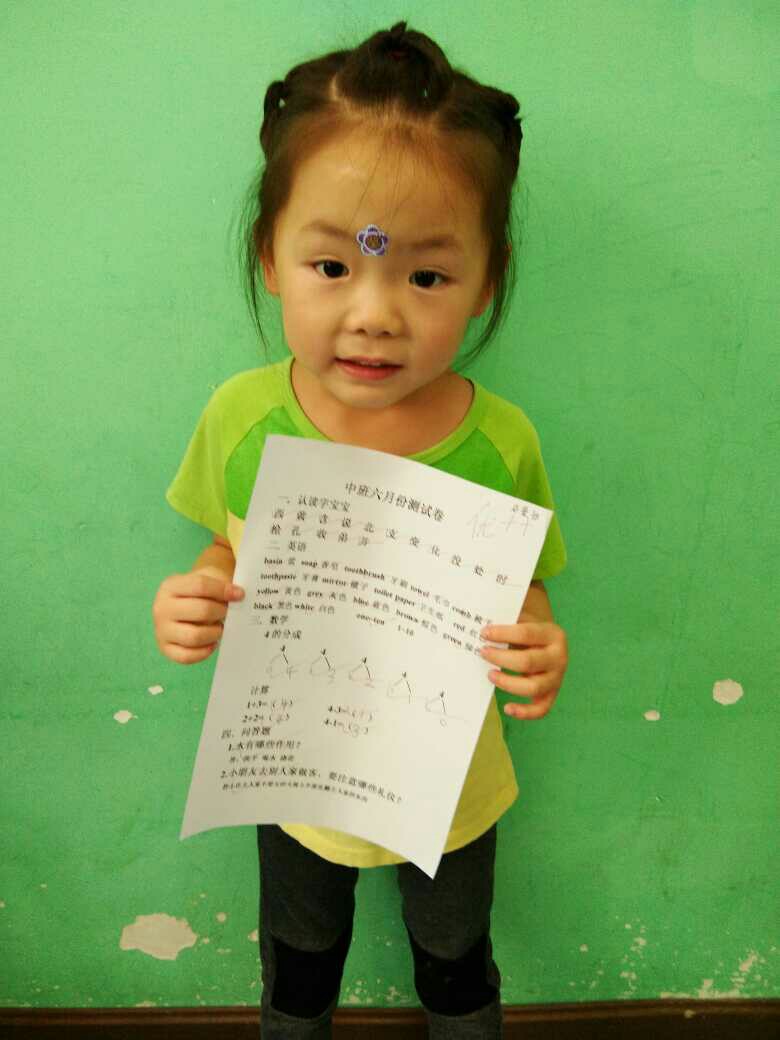 中班六月份测试卷
优++
一、认读字宝宝
西 黄 言 说 北 支 变 化 没 处 时
枪 孔 收 弟 涛
二 英语
basin 盆 soap 香皂 toothbrush 牙刷 towel 毛巾 comb 梳子
toothpaste 牙膏 mirror 镜子 toilet paper 卫生纸 red 红色
yellow 黄色 grey 灰色 blue 蓝色 brown 棕色 green 绿色
black 黑色 white 白色 one-ten 1-10
三、数学
4 的分成
4 4 4 4 4
计算
1+3=(4) 4-3=(1)
2+2=(4) 4-1=(3)
四、问答题
1.水有哪些作用？
答：洗手 喝水 浇花
2.小朋友去别人家做客，要注意哪些礼仪？